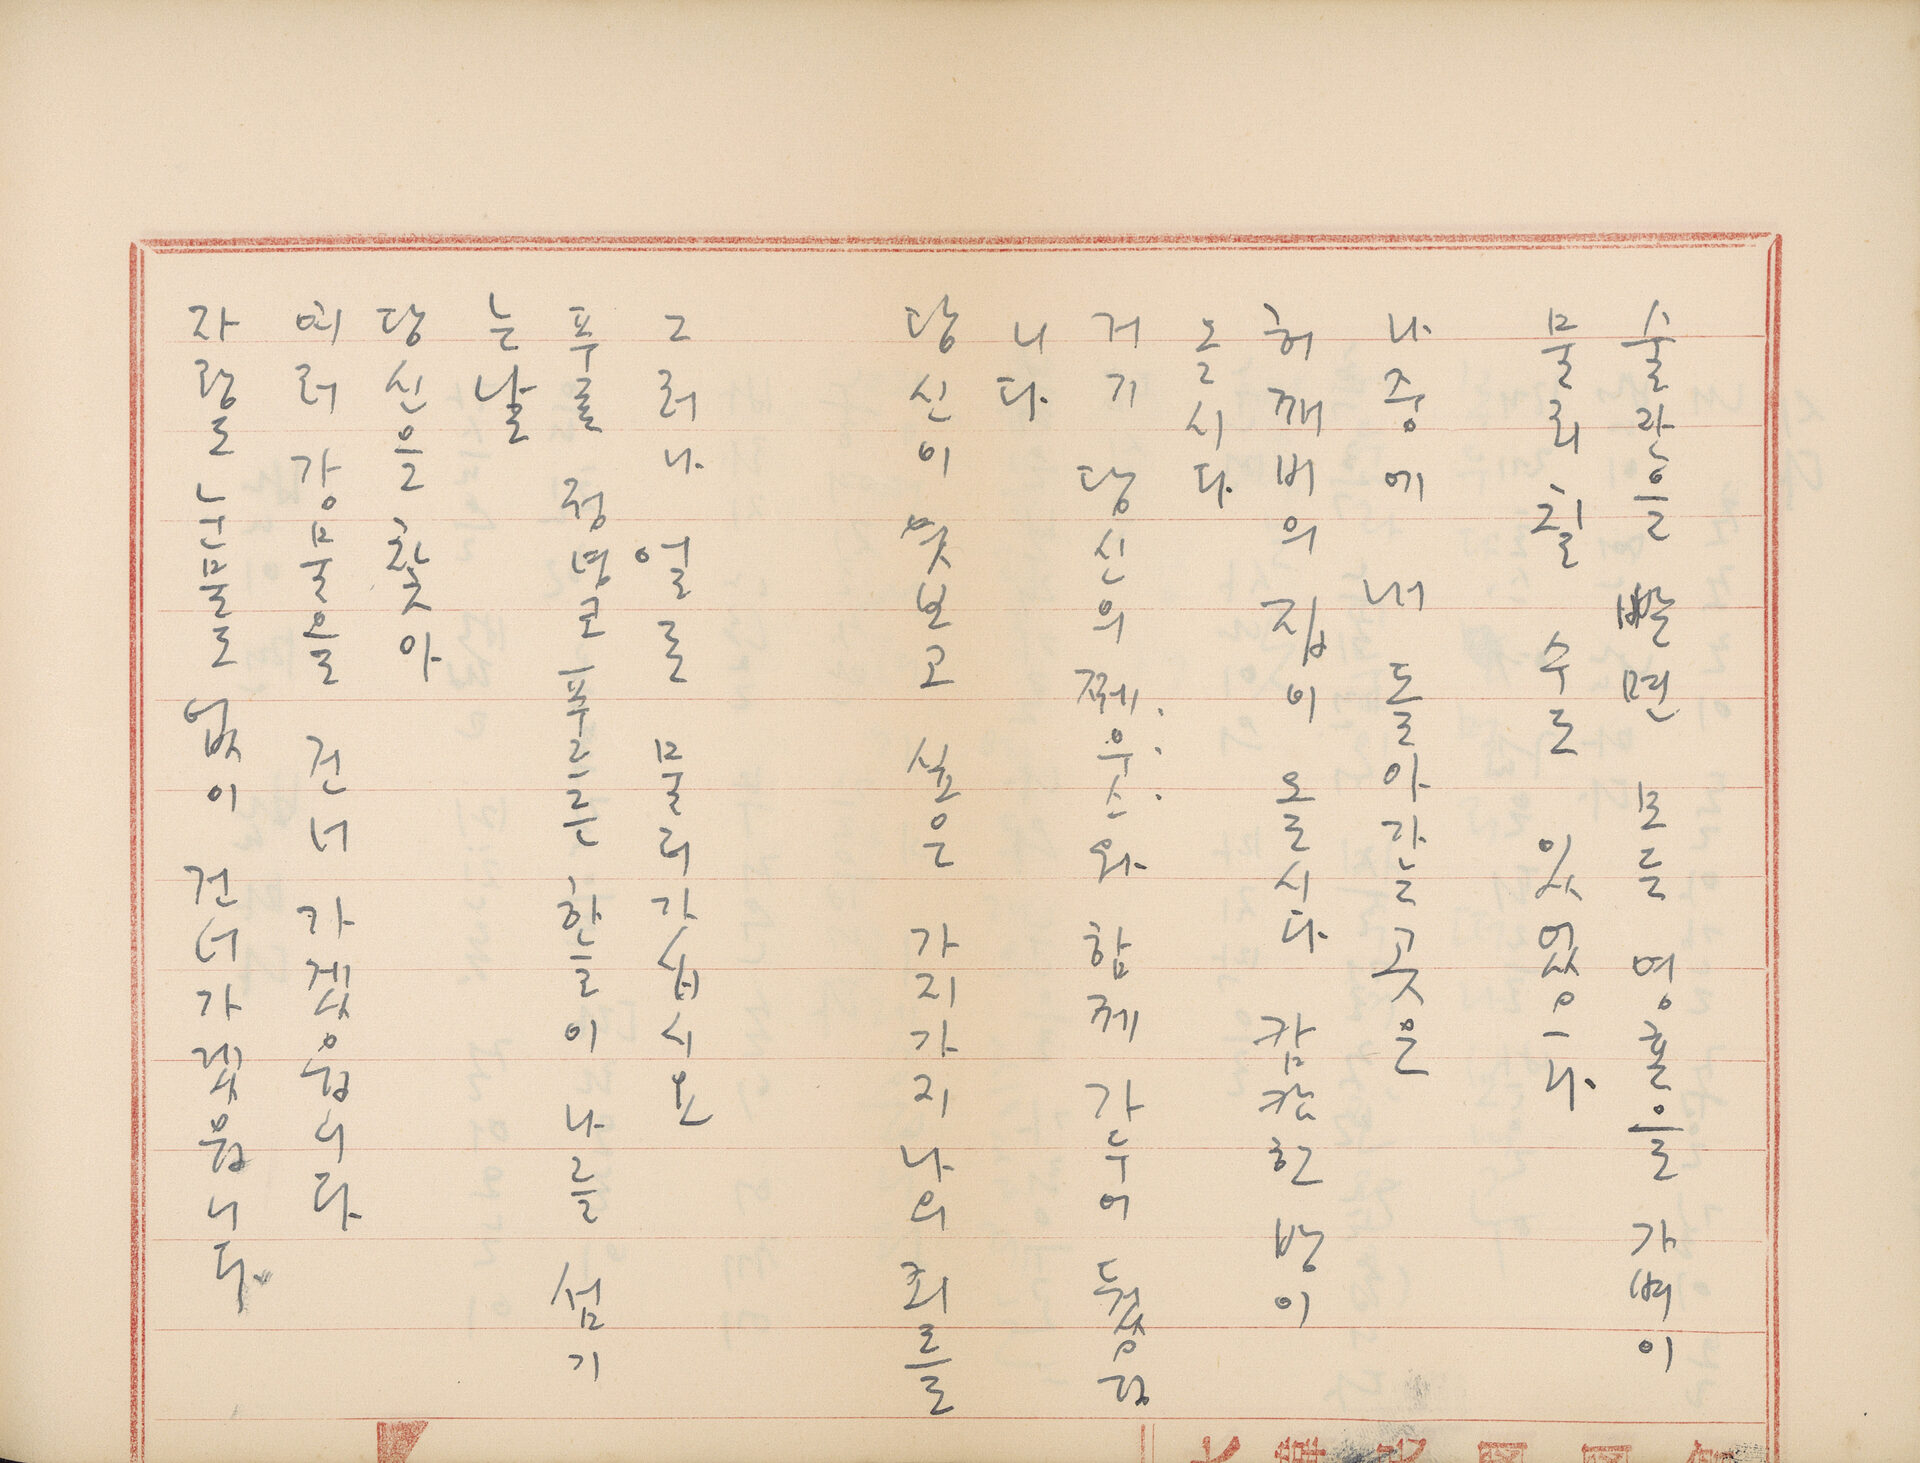 술란을 빨면 모든 영혼을 가벼이
물리칠 수도 있었으나
나중에 내 돌아가는 곳은
허깨비의 집이 올시다 캄캄한 방이
올시다
거기 당신의 쩨우스와 함께 가두어 뒀습니
니다
당신이 엿보고 싶은 가지가지 나의 죄를
그러나 얼른 물러가십시오
푸를 정명코 푸르른 하늘이 나를 섬기
는 날
당신을 찾아
여러 강물을 건너 가겠읍니다
자랑도 눈물도 없이 건너가겠읍니다